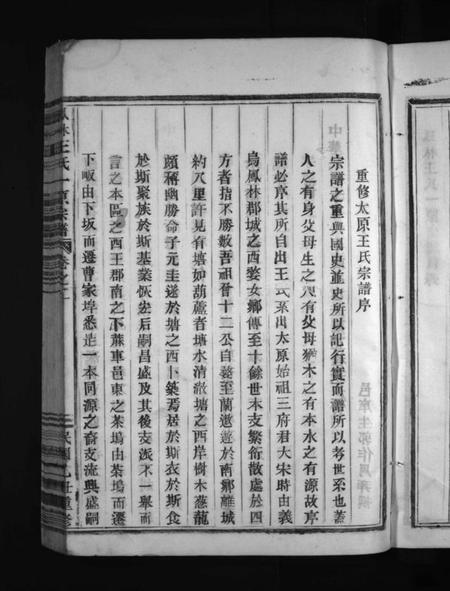 重修太原王氏宗譜序
宗譜之重與國史並史所以記行實而譜所以考世系也蓋
人之有身父母生之身之有父母猶木之有本水之有源故序
譜必序其所自出王氏系出太原始祖三府君大宋時由義
烏鳳林郡城之西婺女鄉傳至十餘世本支繁衍散處於四
方者指不勝數吾祖晉十二公自義至蘭遨遊於南鄉離城
約八里許見有塘如葫蘆者塘水清澈塘之西岸樹木蔥蘢
頗稱幽勝命子元圭遂於塘之西卜築焉居於斯衣於斯食
於斯聚族於斯基業恢宏后嗣昌盛及其後支派不一舉而
言之本區之西王郡南之下蔴車邑東之茶塢由茶塢而遷
下畈由下坂而遷曹家埠悉是一本同源之裔支流興盛嗣
王氏
宗譜
卷之一